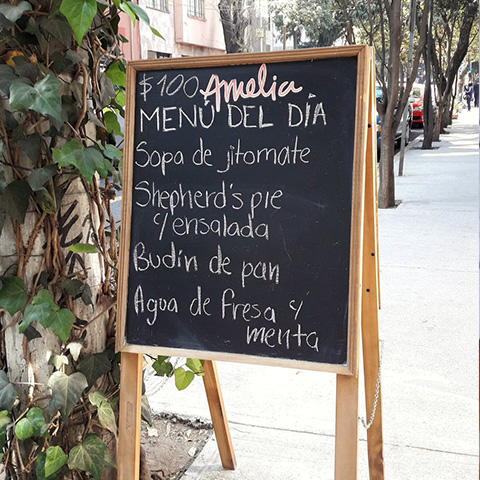 $100 Amelia
MENÚ DEL DÍA
Sopa de jitomate
Shepherd's pie
c/ ensalada
Budín de pan
Agua de fresa y
menta